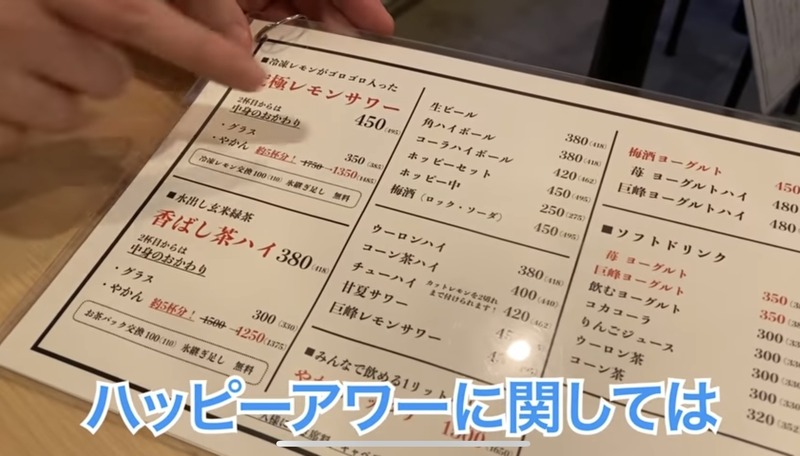 ■冷凍レモンがゴロゴロ入った
極レモンサワー
450(495)
2杯目からは
中身のおかわり
・グラス 350(385)
・やかん 約5杯分! 1750 1350(1485)
冷凍レモン交換100(110) 氷継ぎ足し 無料
■水出し玄米緑茶
香ばし茶ハイ 380(418)
2杯目からは
中身のおかわり
・グラス 300(330)
・やかん 約5杯分! 1500 1250(1375)
お茶パック交換100(110) 氷継ぎ足し 無料
生ビール
角ハイボール 380(418)
コーラハイボール 380(418)
ホッピーセット 420(462)
ホッピー中 450(495)
梅酒(ロック・ソーダ) 250(275)
450(495)
ウーロンハイ
コーン茶ハイ 380(418)
チューハイ カットレモンを2切れまで付けられます! 400(440)
甘夏サワー 420(462)
巨峰レモンサワー
■みんなで飲める1リット
梅酒ヨーグルト 450
苺 ヨーグルトハイ 480
巨峰ヨーグルトハイ 480
■ソフトドリンク
苺 ヨーグルト 350
巨峰ヨーグルト 350
飲むヨーグルト 300
コカコーラ 300
りんごジュース 300
ウーロン茶 300
コーン茶 320(352
ハッピーアワーに関しては